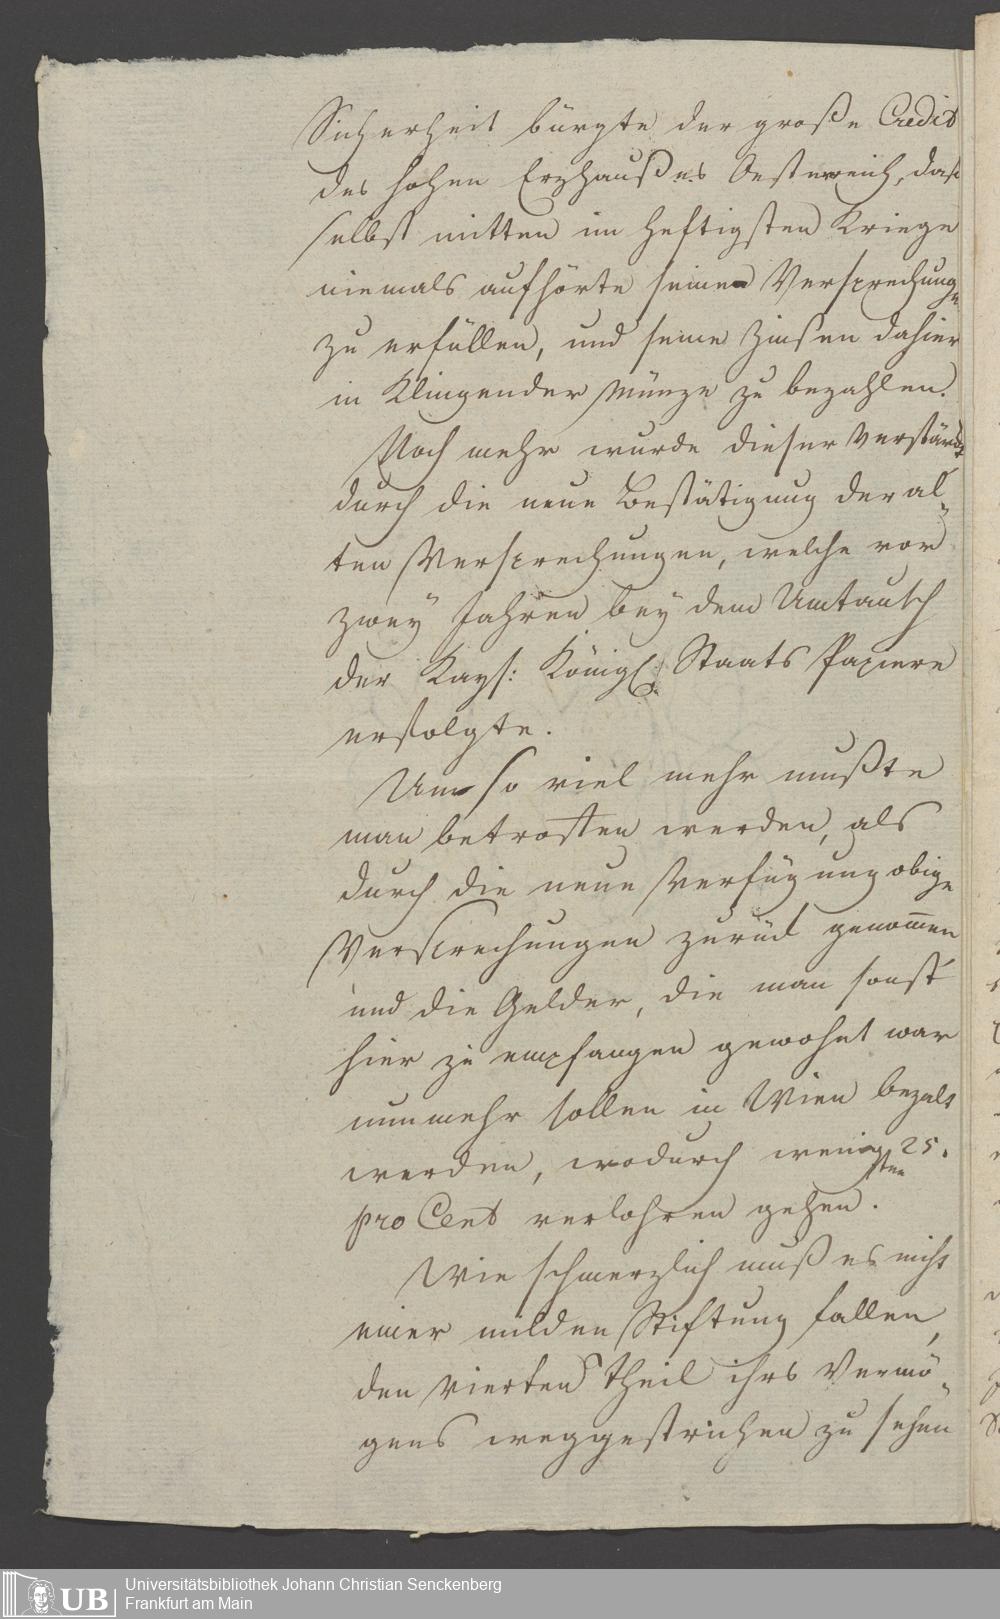 Sicherheit bürgte der große Credit
des hohen Erzhaußes Oesterreich, das
selbst mitten im heftigsten Kriege
niemals aufhörte seine Versprechunge
zu erfüllen, und seine Zinsen dahier
in Klingender Münze zu bezahlen.
Noch mehr wurde dieser verstärkt
durch die neue Bestätigung der al„
ten Versprechungen, welche vor
zwey Jahren bey dem Umtausch
der Kays: Königl: Staats Papiere
erfolgte.
Um so viel mehr mußte
man betroffen werden, als
durch die neue Verfügung obige
Versprechungen zurück genom̅en
und die Gelder, die man sonst
hier zu empfangen gewohnt war
nunmehr sollen in Wien bezalt
werden, wodurch wenigsten 25.
pro Cent verlohren gehen.
Wie schmerzlich muß es nicht
einer milden Stiftung fallen,
den vierten Theil ihrs Vermö„
gens weggestrichen zu sehen
UB Universitätsbibliothek Johann Christian Senckenberg
Frankfurt am Main